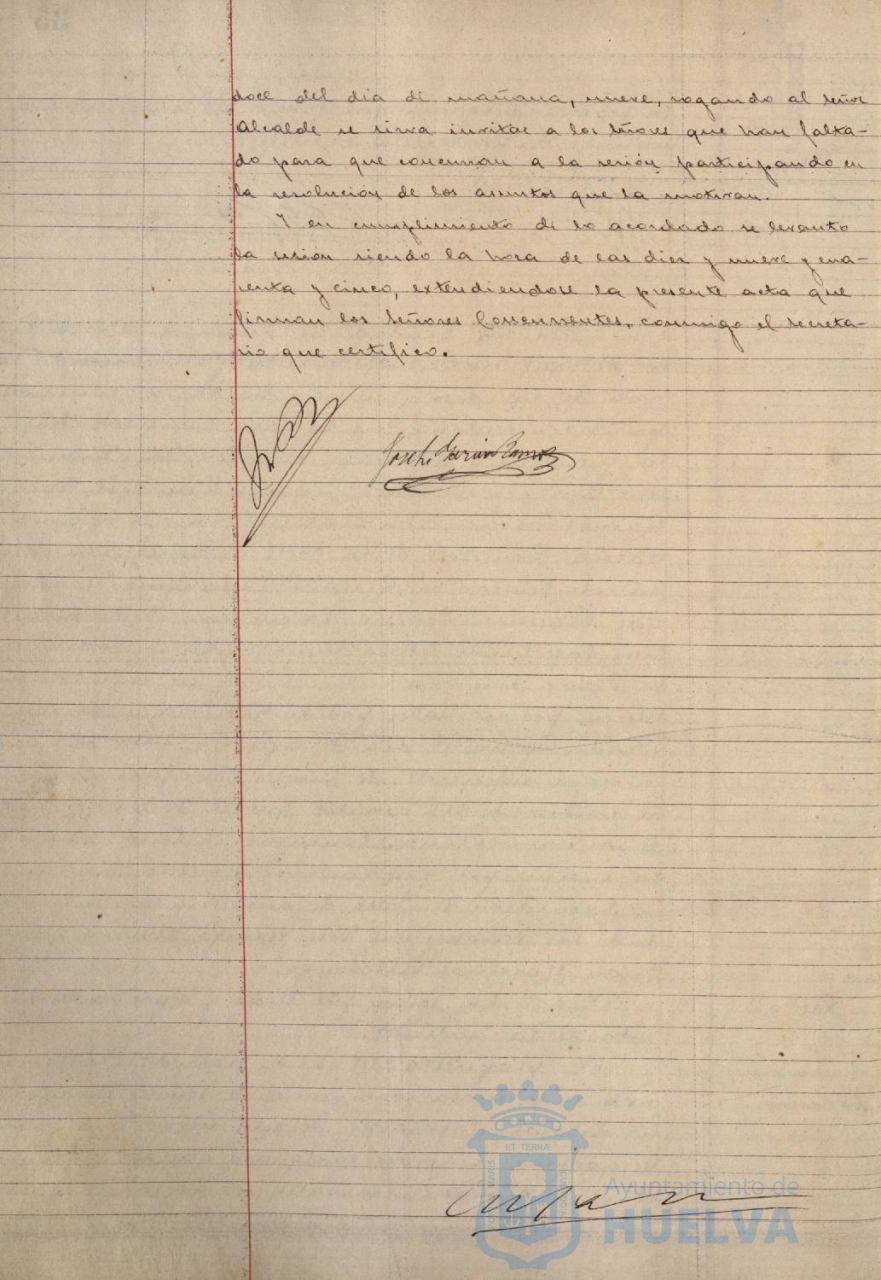 doce del dia de mañana, nueve, rogando al señor
Alcalde se sirva invitar a los señores que han falta-
do para que concurran a la sesión participando en
la resolución de los asuntos que la motivan.
Y en cumplimiento de lo acordado se levanto
la sesión siendo la hora de las diez y nueve y cua-
renta y cinco, extendiendose la presente acta que
firman los Señores Concurrentes, conmigo el secreta-
rio que certifico.
José García Ramos
ET TERRÆ
Ayuntamiento de
HUELVA